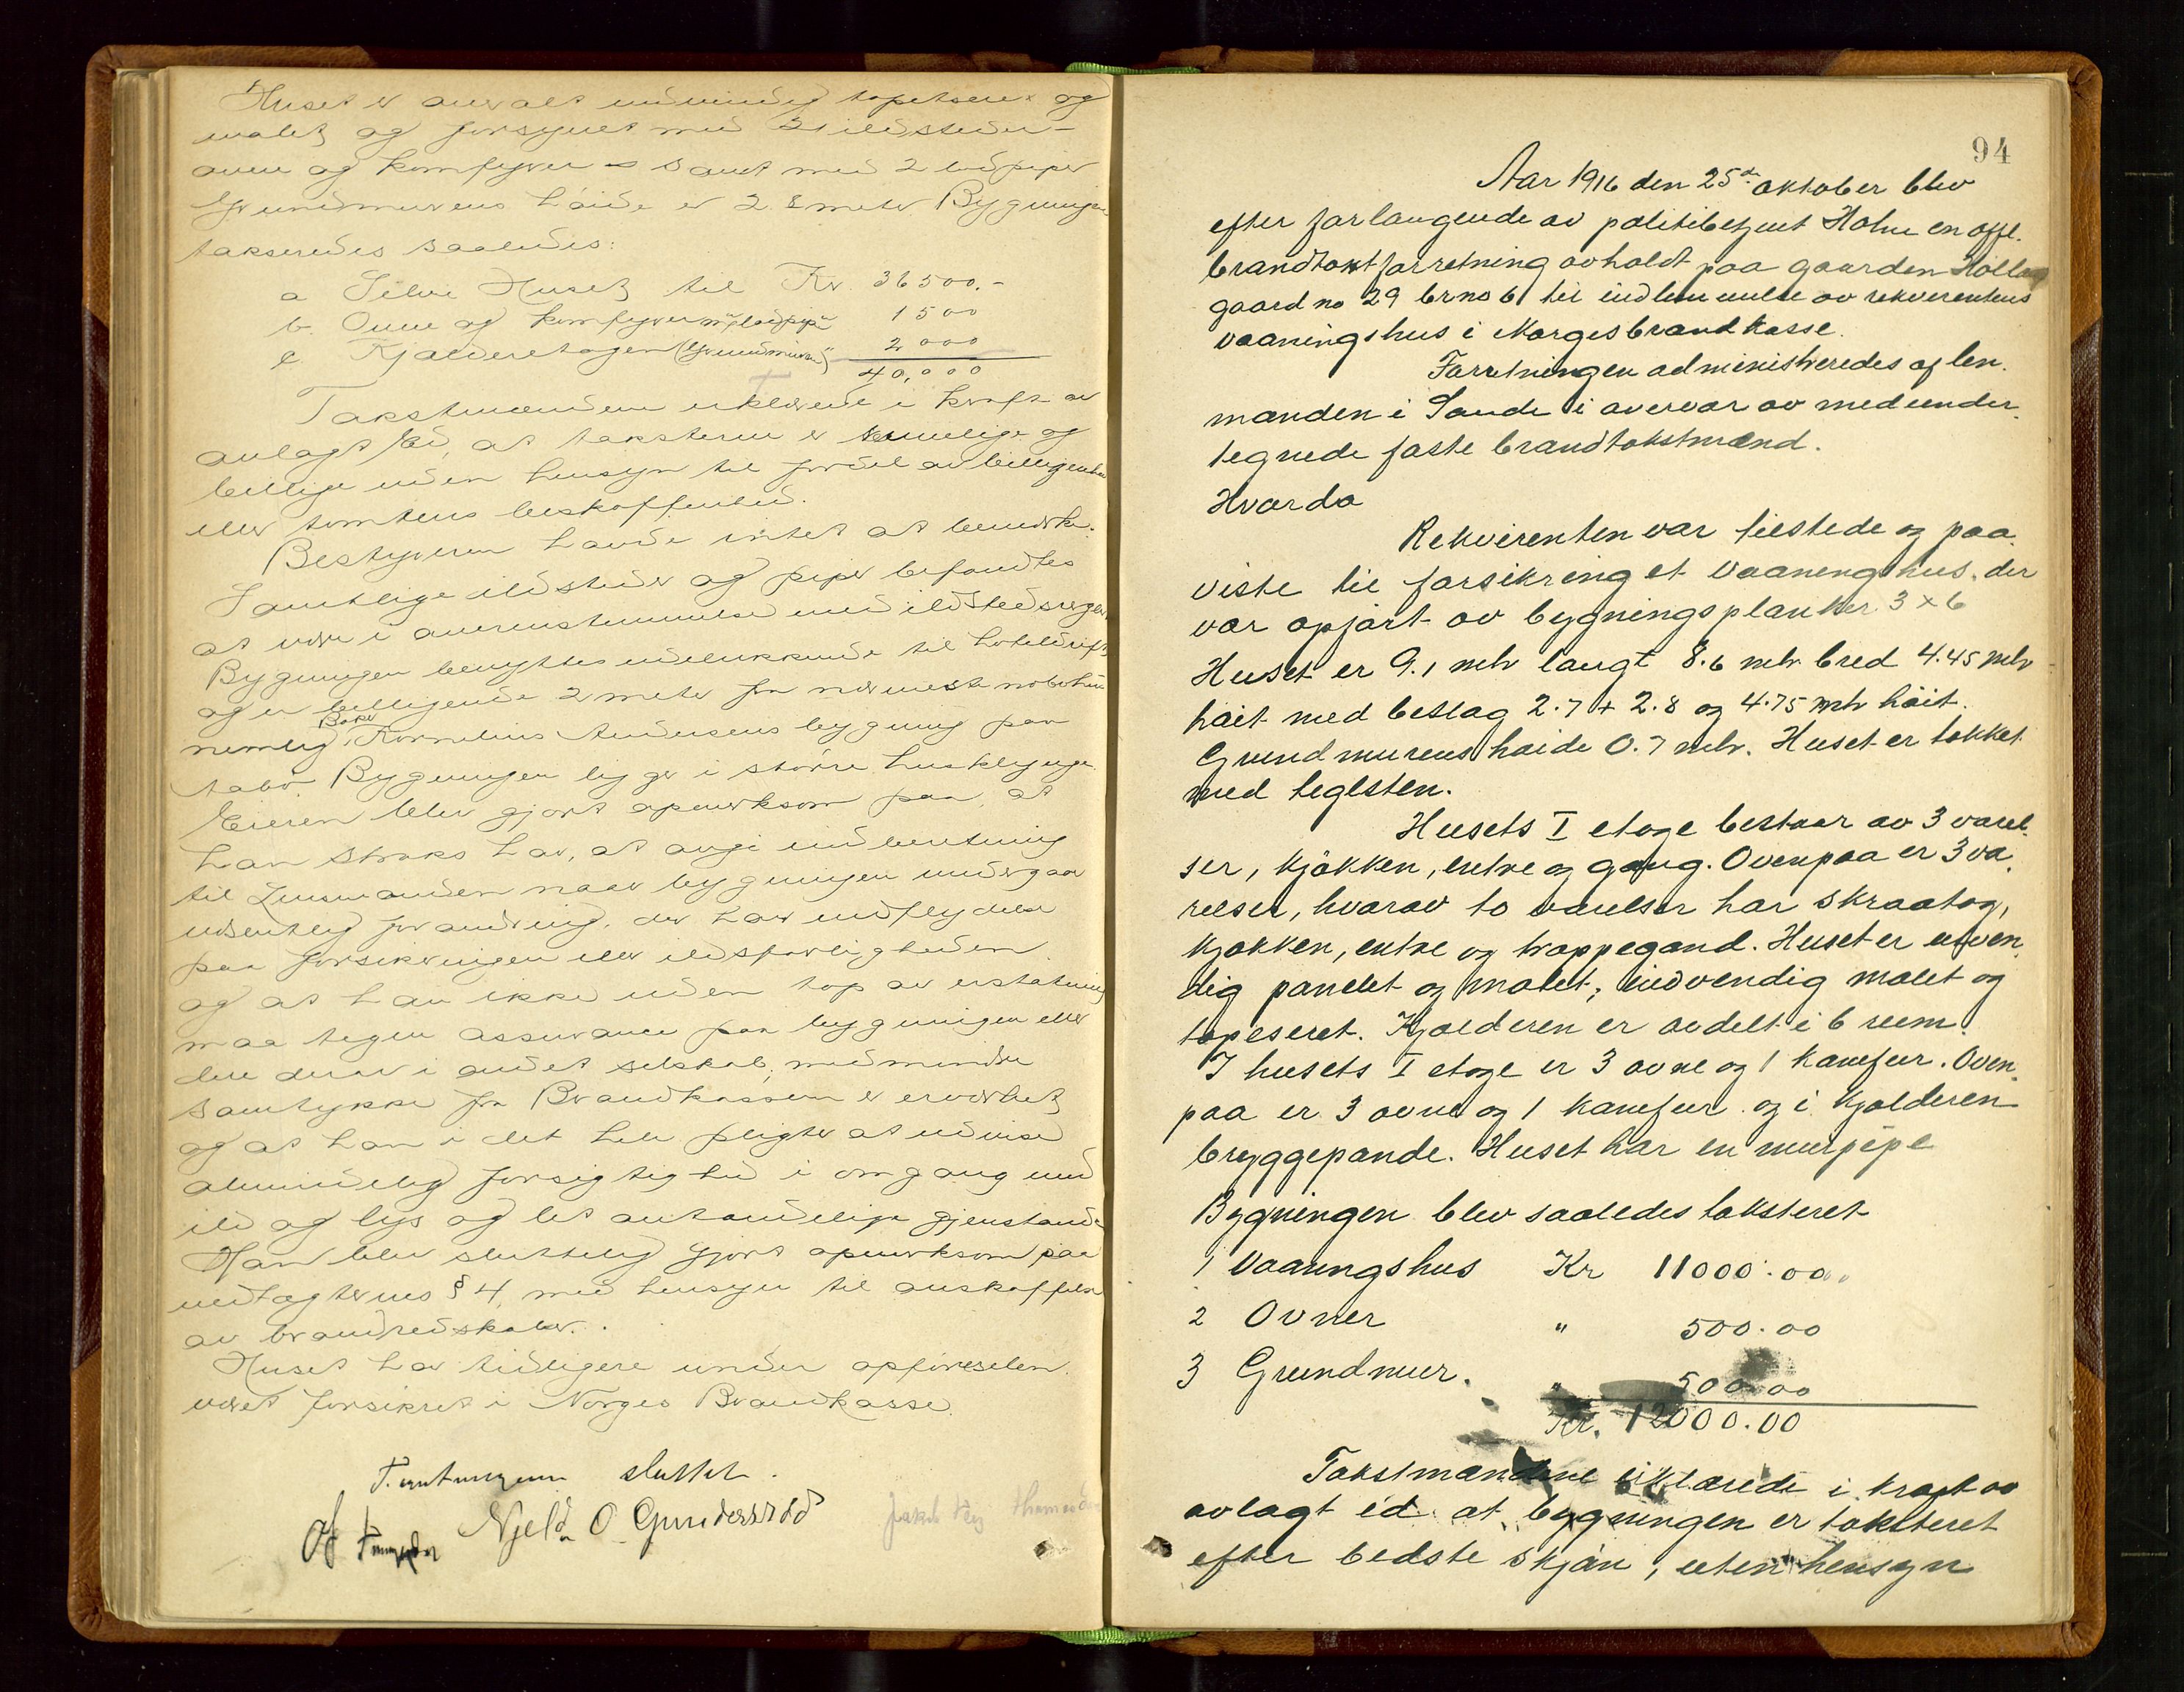 Huset er overalt indvendig tapetseret og
malet og forsynet med 21 ildsteder –
ovne og komfyrer – samt med 2 lødpiper
Grundmurens høide er 2.8 meter Bygningen
takseredes saaledes:
a Selve Huset til Kr. 36500.-
b. Ovne og komfyrer m/lødpiper 1500
c. Kjælderetagen (Grundmuren) 2000
40,000
Takstmændene erklærede i kraft av
avlagt Ed, at taksterne er rimelige og
billige uden hensyn til fordel av beliggenhed
eller tomtens beskaffenhed.
Bestyreren havde intet at bemerke.
Samtlige ildsteder og piper befandtes
at være i overensstemmelse med ildstedsregler
Bygningen benyttes udelukkende til hoteldrift
og er beliggende 2 meter fra nærmeste nabohus
nemlig Baker Kornelius Andersens bygning paa
tabr. Bygningen ligger i større husklynge.
Eieren blev gjort opmerksom paa, at
han straks har, at avgi indberetning
til Lensmanden naar bygningen undergaar
væsentlig forandring, der har indflydelse
paa forsikringen eller ildsfarligheden
og at han ikke uden tap av erstatning
maa tegne assurance paa bygningen eller
dele derav i andet selskab, medmindre
samtykke fra Brandkassen er erværvet
og at han i det hele pligter at udvise
almindelig forsigtighed i omgang med
ild og lys og let antændelige gjenstande
Han blev sluttelig gjort opmerksom paa
vedtægternes § 4, med hensyn til anskaffelse
av brandredskaber.
Huset har tidligere under opførelsen
været forsikret i Norges Brandkasse.
Forretningen sluttet.
Njeld O Gundersrød
Jakob Thomasdn
94
Aar 1916 den 25de oktober blev
efter forlangende av politibetjent Holm en offl.
brandtakstforretning avholdt paa gaarden Holla
gaard no 29 brno 6 til indlemmelse av rekverentens
vaaningshus i Norges brandkasse.
Forretningen administreredes af len.
manden i Sande i overvær av medunder.
tegnede faste brandtakstmænd.
Hvorda
Rekvirenten var tilstede og paa.
viste til forsikring et vaaningshus, der
var opført av bygningsplanker 3 x 6
Huset er 9.1 mtr langt 8.6 mtr. bred 4.45 mtr
høit med beslag 2.7 + 2.8 og 4.75 mtr høit.
Grundmurens høide 0.7 mtr. Huset er tækket
med teglsten.
Husets I etage bestaar av 3 værel.
ser, kjøkken, entre og gang. Ovenpaa er 3 væ.
relser, hvorav to værelser har skraatag,
kjøkken, entre og trappegand. Huset er utven.
dig panelet og malet, indvendig malet og
tapeseret. Kjælderen er avdelt i 6 rum.
I husets I etage er 3 ovne og 1 kamfur. Oven.
paa er 3 ovne og 1 kamfur og i kjælderen
bryggepande. Huset har en murpipe
Bygningen blev saaledes taksteret
1 Vaaningshus Kr 11000.00
2 Ovner " 500.00
3 Grundmur. " 500.00
Kr. 12000.00
Takstmændene erklærede i kraft av
avlagt ed at bygningen er taksteret
efter bedste skjøn, uten hensyn